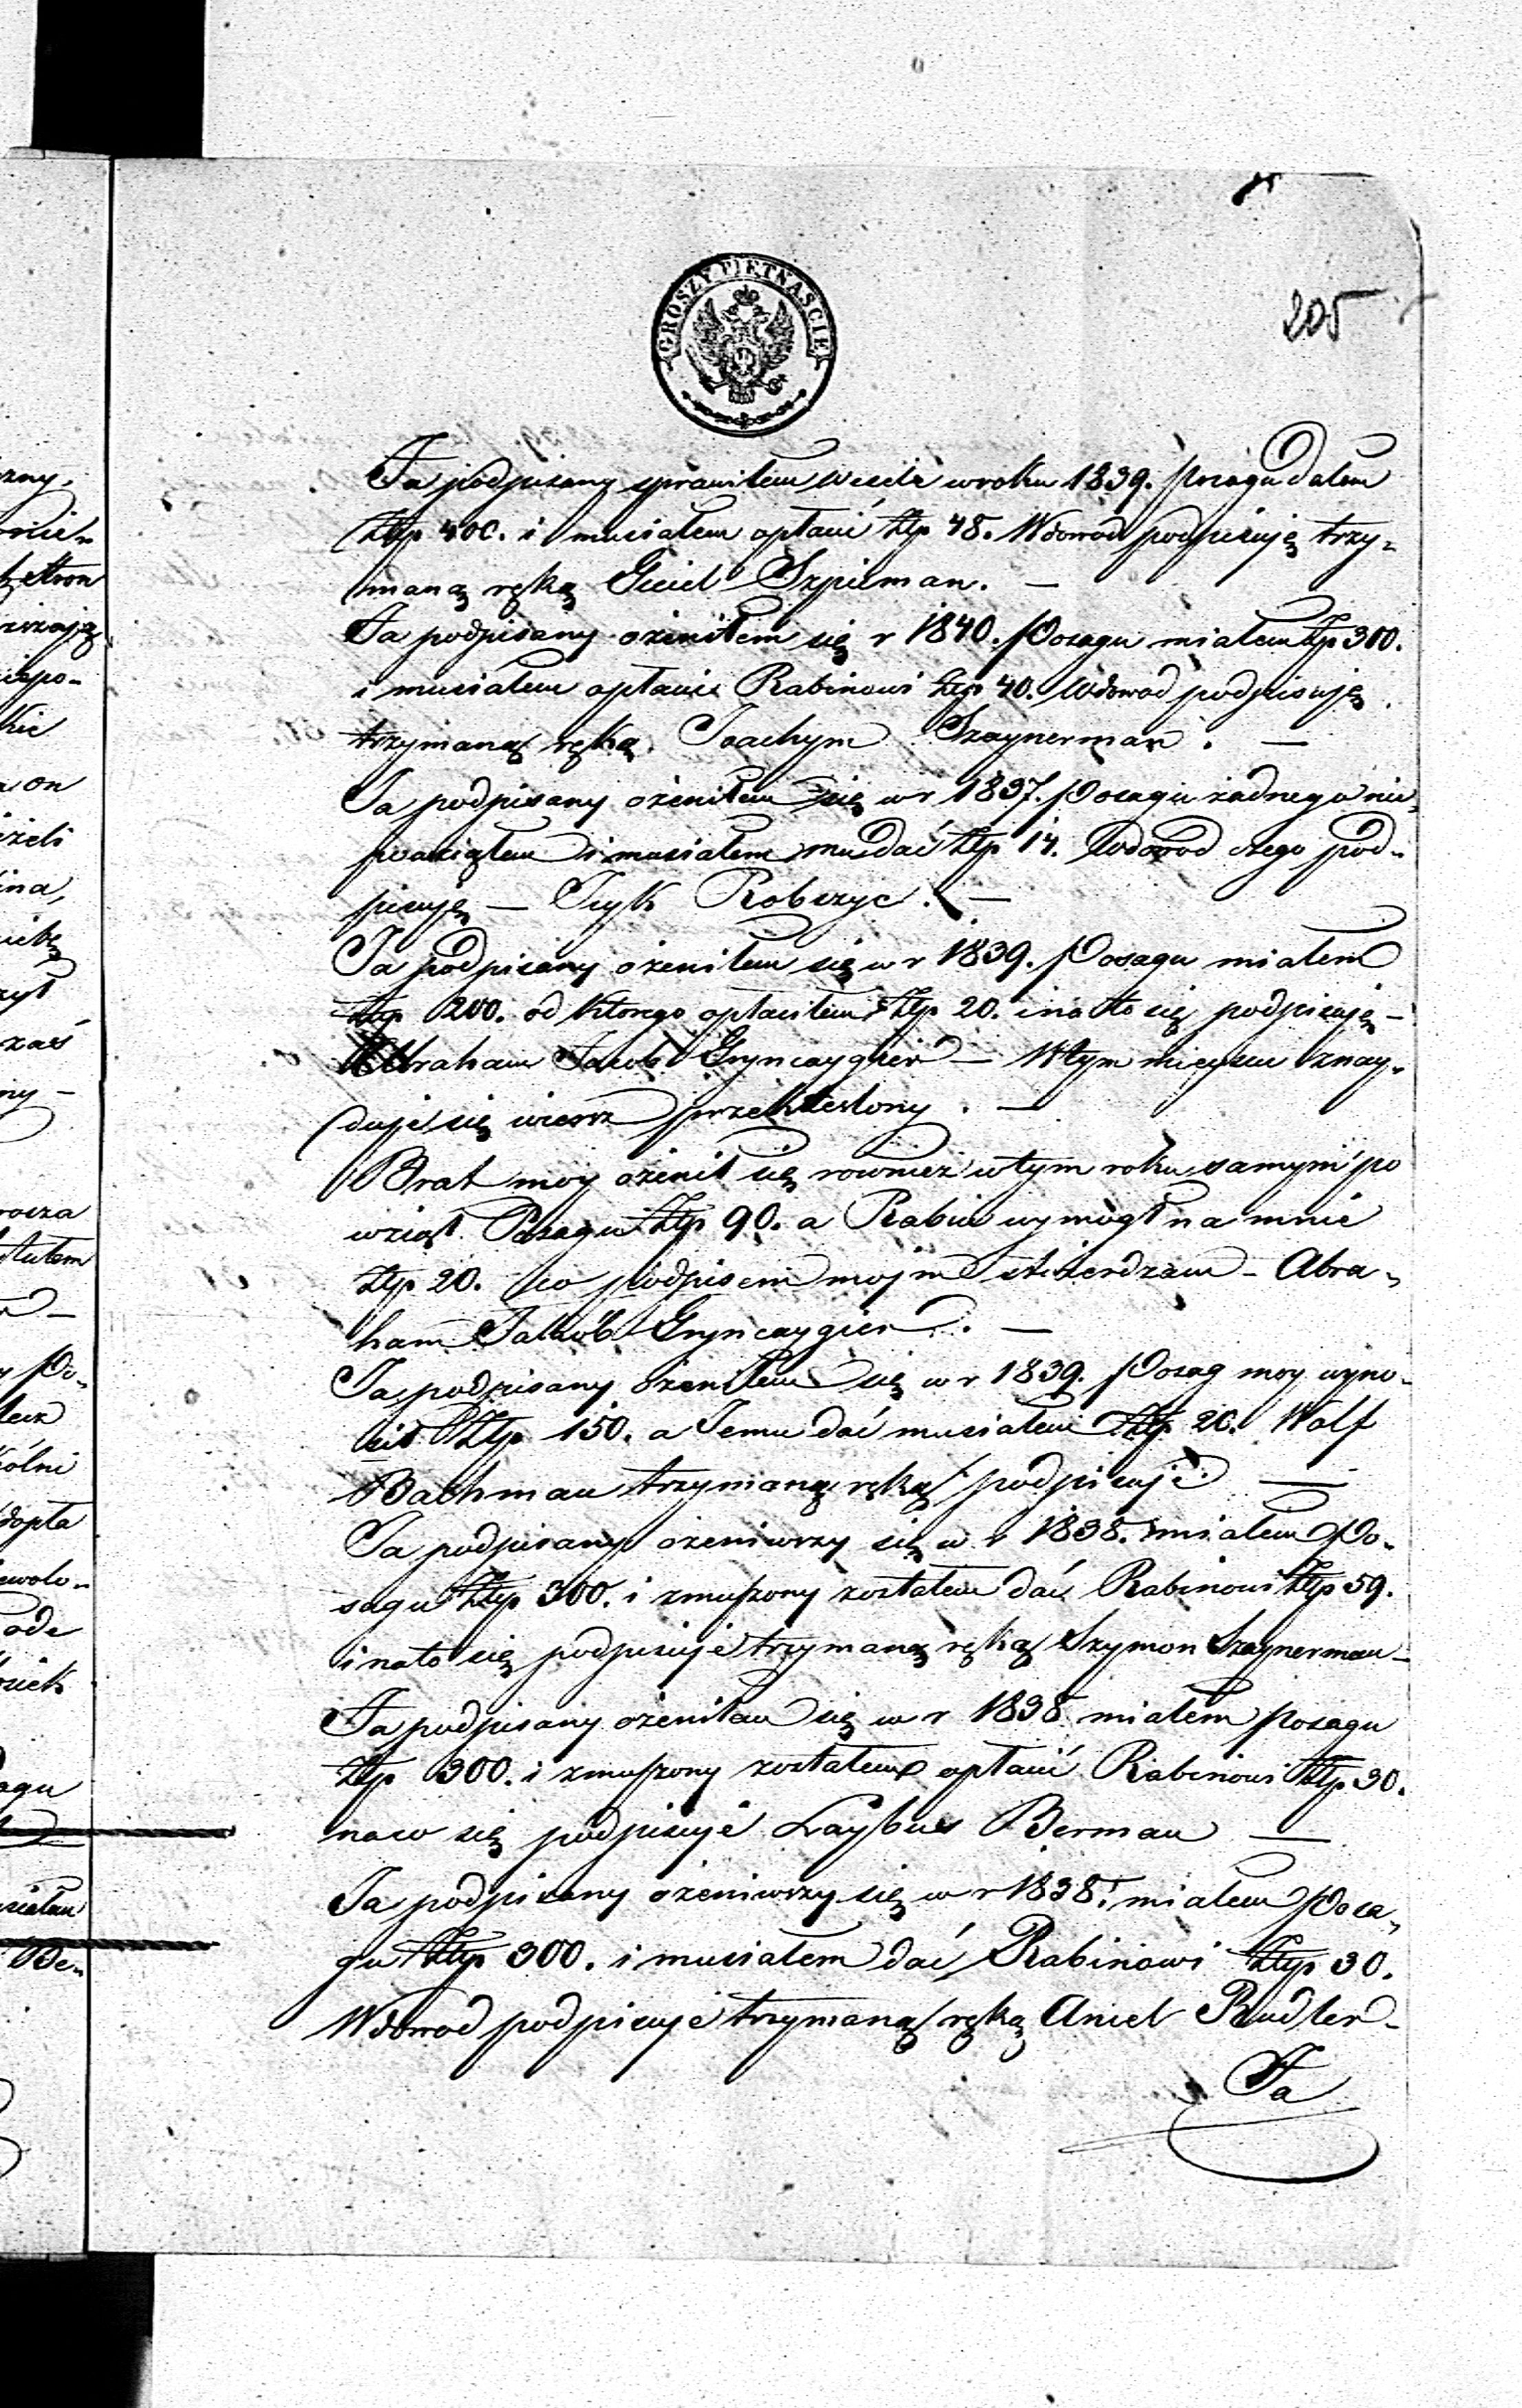 205
GROSZY PIETNAŚCIE
Ja podpisany sprawiłem wesele w roku 1839. Posagu dałem
Złp 400. i musiałem opłacić Złp 48. W dowód podpisuję trzy-
maną ręką Szpilman. —
Ja podpisany ożeniłem się r 1840. Posagu miałem Złp 300.
i musiałem opłacić Rabinowi Złp 40. W dowod podpisuję
trzymaną ręką Joachym Szaynerman. —
Ja podpisany ożeniłem się w r 1837. Posagu żadnego nie
powziąłem i musiałem mu dać Złp 14. W dowod czego pod-
pisuję — Icyk Robczyc. —
Ja podpisany ożeniłem się w r 1839. Posagu miałem
Złp 200. od ktorego opłaciłem Złp 20. i na to się podpisuję —
Abraham Jakob Gryncaygier — W tym mieyscu znay-
duje się wiersz przekreslony. —
Brat moy ożenił się rownież w tym roku samym po
wziął Posagu Złp 90. a Rabin wymógł na mnie
Złp 20. co podpisem mojm stwierdzam – Abra-
ham Jakób Gryncaygier. —
Ja podpisany ożeniłem się w r 1839. Posag moy wyno-
sił Złp 150. a Jemu dać musiałem Złp 20. Wolf
Bachman trzymaną ręką podpisuje —
Ja podpisany ożeniwszy się w r 1838. miałem Po-
sagu Złp 300. i zmuszony zostałem dać Rabinowi Złp 59.
i na to się podpisuje trzymaną ręką Szymon Szaynerman –
Ja podpisany ożeniłem się w r 1838 miałem posagu
Złp 300. i zmuszony zostałem opłacić Rabinowi Złp 30.
na co się podpisuje Laybus Berman —
Ja podpisany ożeniwszy się w r 1838. miałem Posa-
gu Złp 300. i musiałem dać Rabinowi Złp 30.
W dowod podpisuje trzymaną ręką Aniel Rudler –
Ja